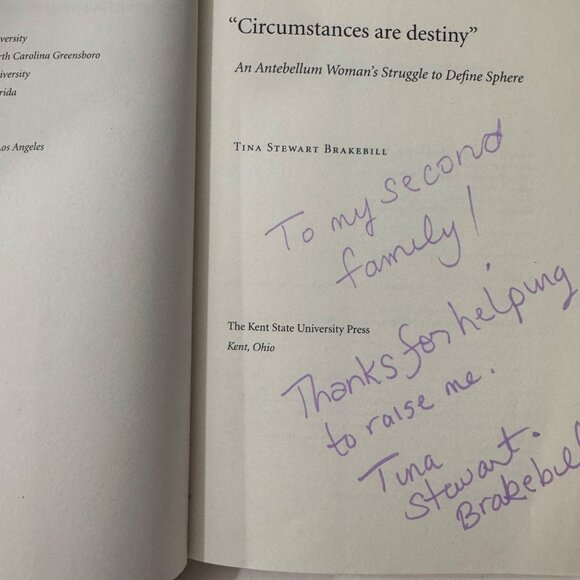 versity
rth Carolina Greensboro
iversity
rida
os Angeles
"Circumstances are destiny"
An Antebellum Woman's Struggle to Define Sphere
Tina Stewart Brakebill
To my second
family!
The Kent State University Press
Kent, Ohio
Thanks for helping
to raise me.
Tina
Stewart.
Brakebill